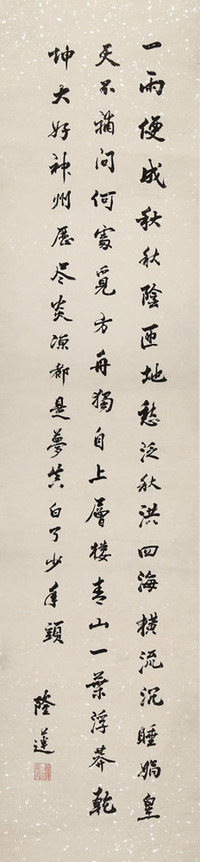 一雨便成秋秋陰匝地愁泛秋洪四海橫流沉睡媧皇
天不補問何處覓方舟獨自上層樓青山一葉浮莽乾
坤大好神州歷尽炎涼都是夢莫白了少年頭
隆蓮